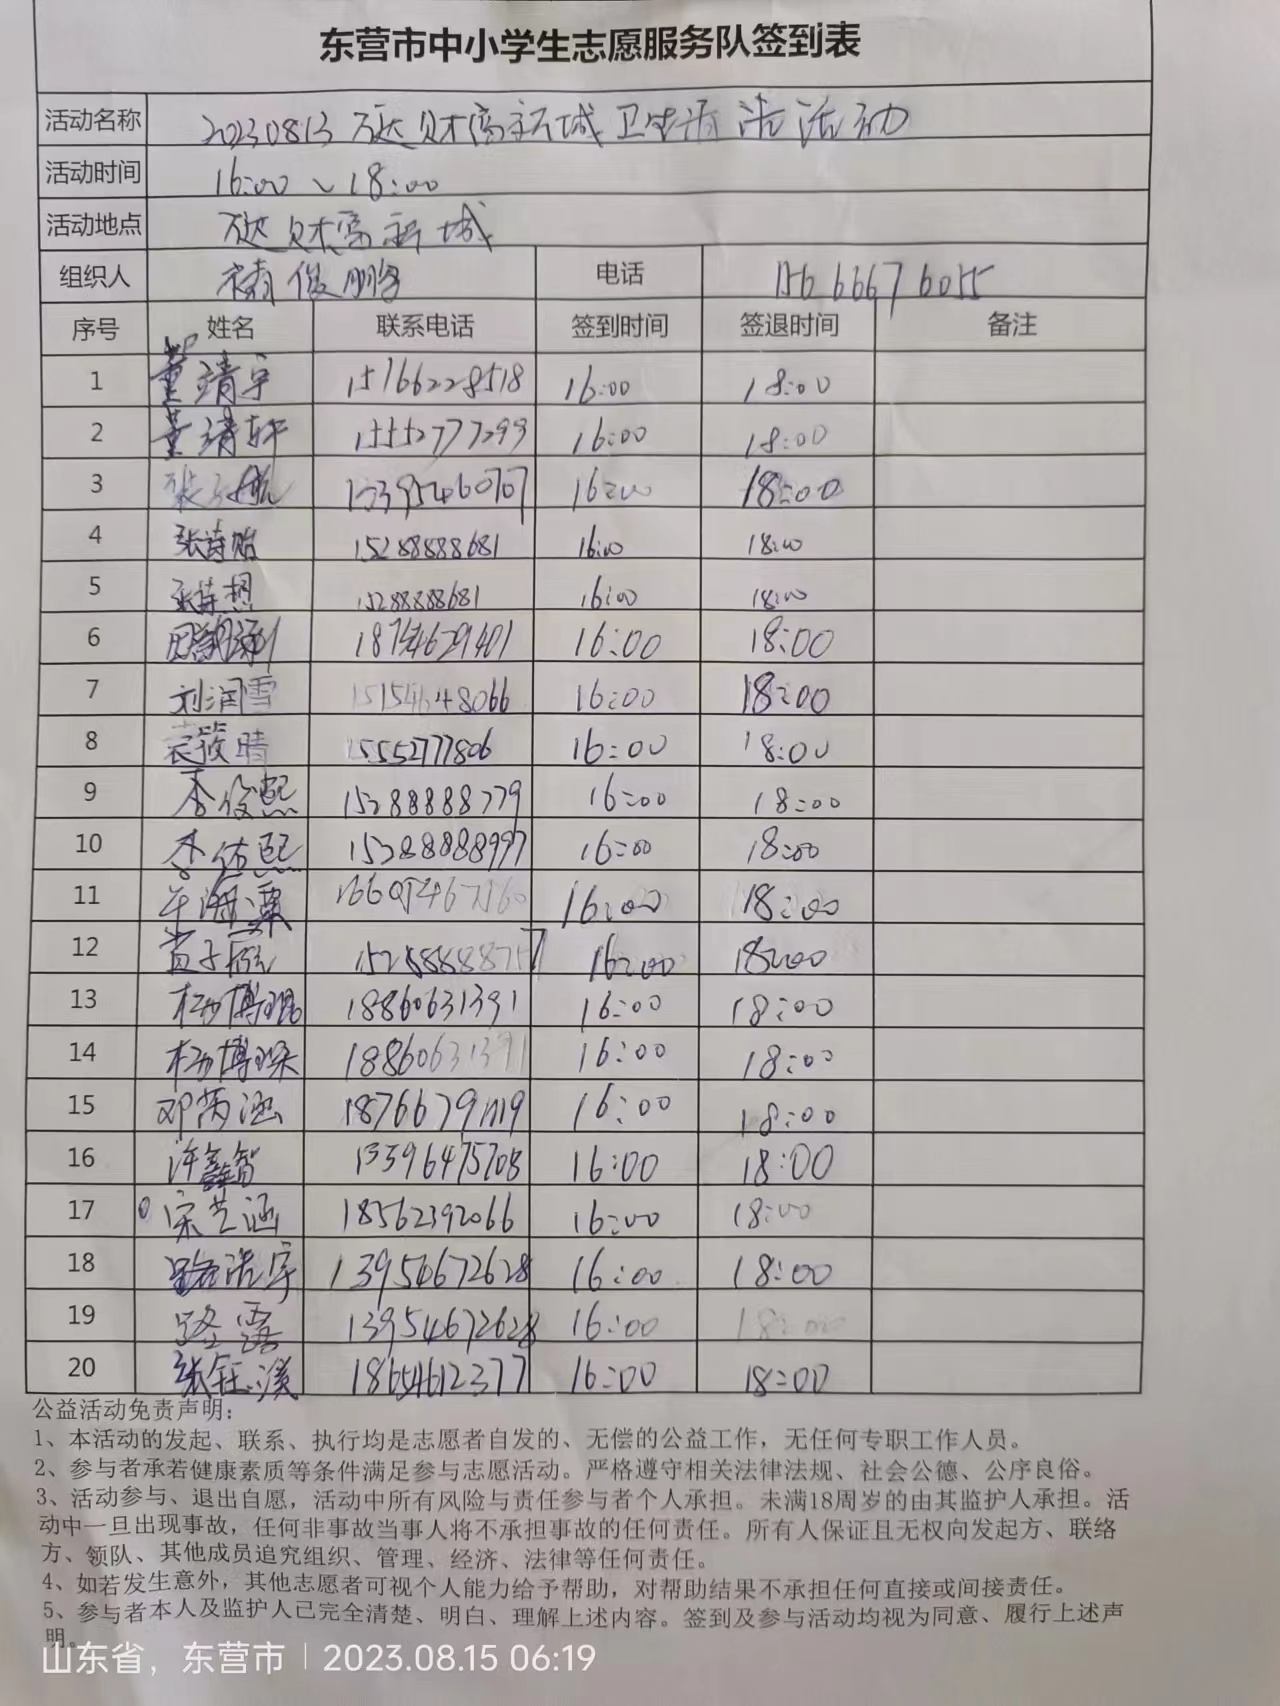 东营市中小学生志愿服务队签到表
活动名称 20230813 万达财富新城卫生清洁活动
活动时间 16:00~18:00
活动地点 万达财富新城
组织人 俊鹏 电话 15666676055
序号 姓名 联系电话 签到时间 签退时间 备注
1 董靖宇 15766228518 16:00 18:00
2 董靖轩 15552777299 16:00 18:00
3 张 航 13395460707 16:00 18:00
4 张诗贻 15288888681 16:00 18:00
5 张诗想 15288888681 16:00 18:00
6 18754629401 16:00 18:00
7 刘润雪 15154648066 16:00 18:00
8 袁筱晴 15552777806 16:00 18:00
9 李俊熙 15288888779 16:00 18:00
10 李佑熙 15288888997 16:00 18:00
11 16:00 18:00
12 子 15288888757 16:00 18:00
13 杨博琨 18860631391 16:00 18:00
14 杨博琛 18860631391 16:00 18:00
15 邓茜涵 16:00 18:00
16 许鑫智 13396475708 16:00 18:00
17 宋艺涵 18562392066 16:00 18:00
18 路浩宇 13954672628 16:00 18:00
19 路露 13954672628 16:00 18:00
20 张钰漢 18654612377 16:00 18:00
公益活动免责声明：
1、本活动的发起、联系、执行均是志愿者自发的、无偿的公益工作，无任何专职工作人员。
2、参与者承若健康素质等条件满足参与志愿活动。严格遵守相关法律法规、社会公德、公序良俗。
3、活动参与、退出自愿，活动中所有风险与责任参与者个人承担。未满18周岁的由其监护人承担。活
动中一旦出现事故，任何非事故当事人将不承担事故的任何责任。所有人保证且无权向发起方、联络
方、领队、其他成员追究组织、管理、经济、法律等任何责任。
4、如若发生意外，其他志愿者可视个人能力给予帮助，对帮助结果不承担任何直接或间接责任。
5、参与者本人及监护人已完全清楚、明白、理解上述内容。签到及参与活动均视为同意、履行上述声
明。
山东省，东营市 | 2023.08.15 06:19